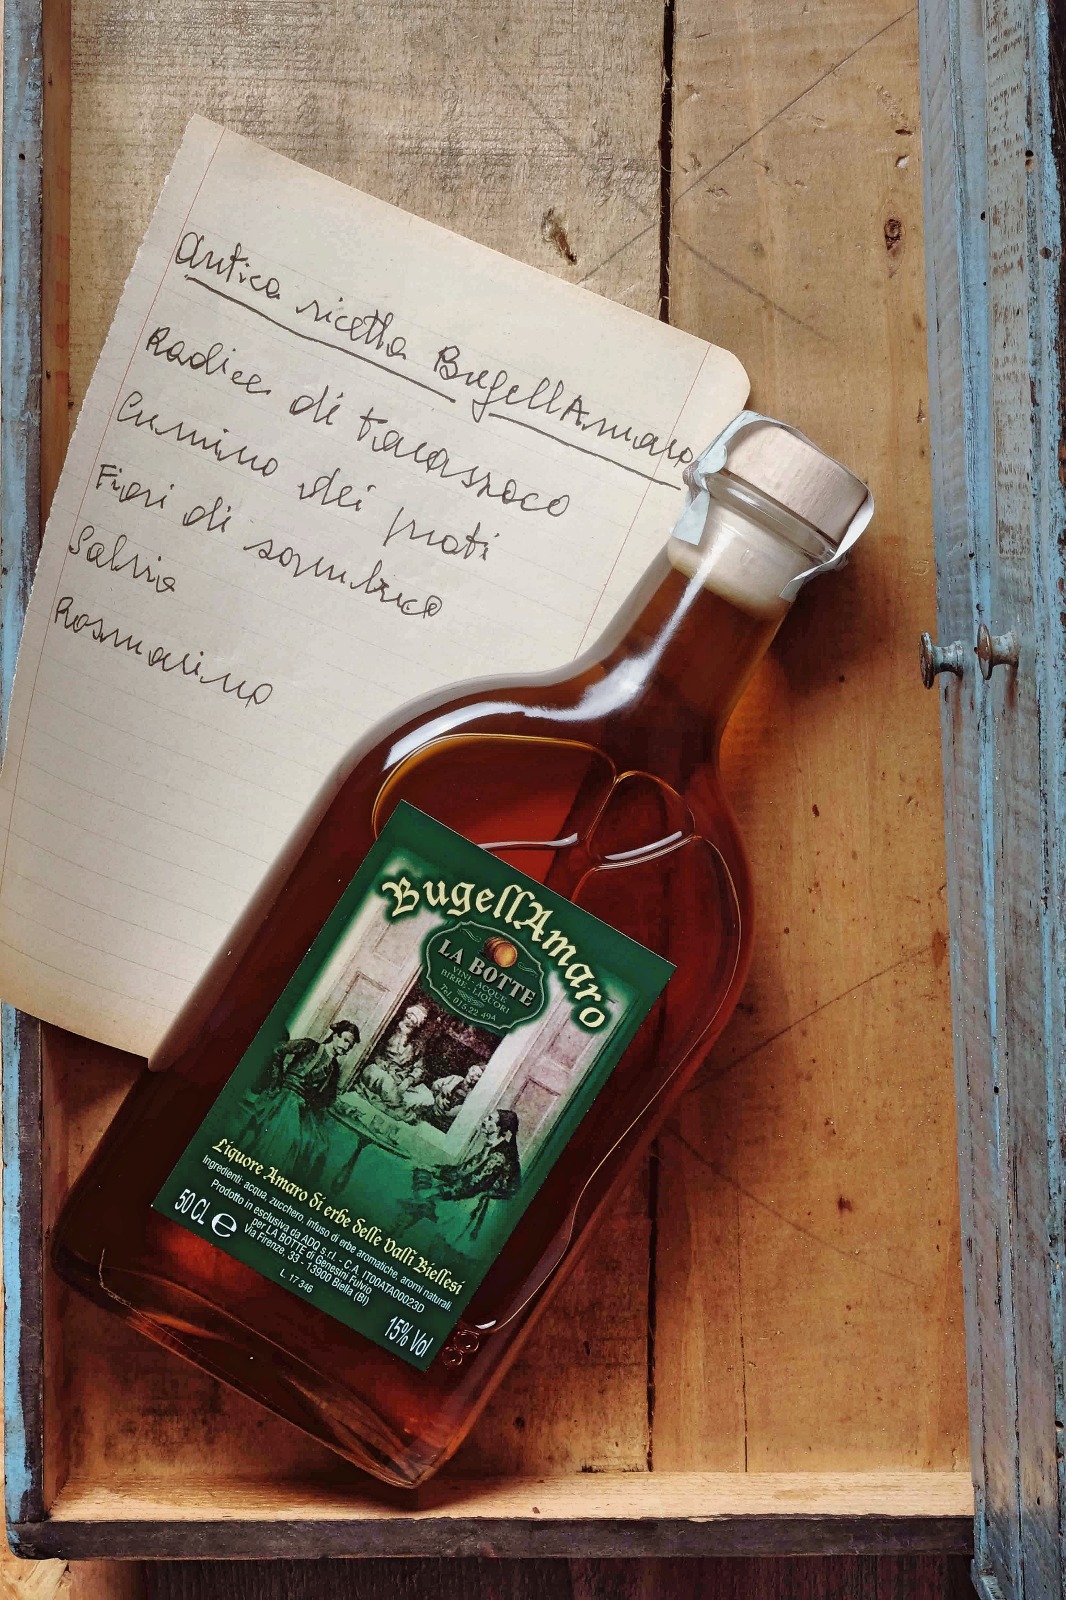 Antica ricetta BugellAmaro
Radice di tarassaco
Cumino dei prati
Fiori di sambuco
Salvia
Rosmarino
BugellAmaro
LA BOTTE
VINI - ACQUE
BIRRE - LIQUORI
Tel. 015.22 494
Liquore Amaro di erbe delle Valli Biellesi
Ingredienti: acqua, zucchero, infuso di erbe aromatiche, aromi naturali.
Prodotto in esclusiva da ADQ s.r.l - C.A. IT00ATA00023D
per LA BOTTE di Genesini Fulvio
Via Firenze, 33 - 13900 Biella (BI)
50 CL e
L. 17 346
15% Vol